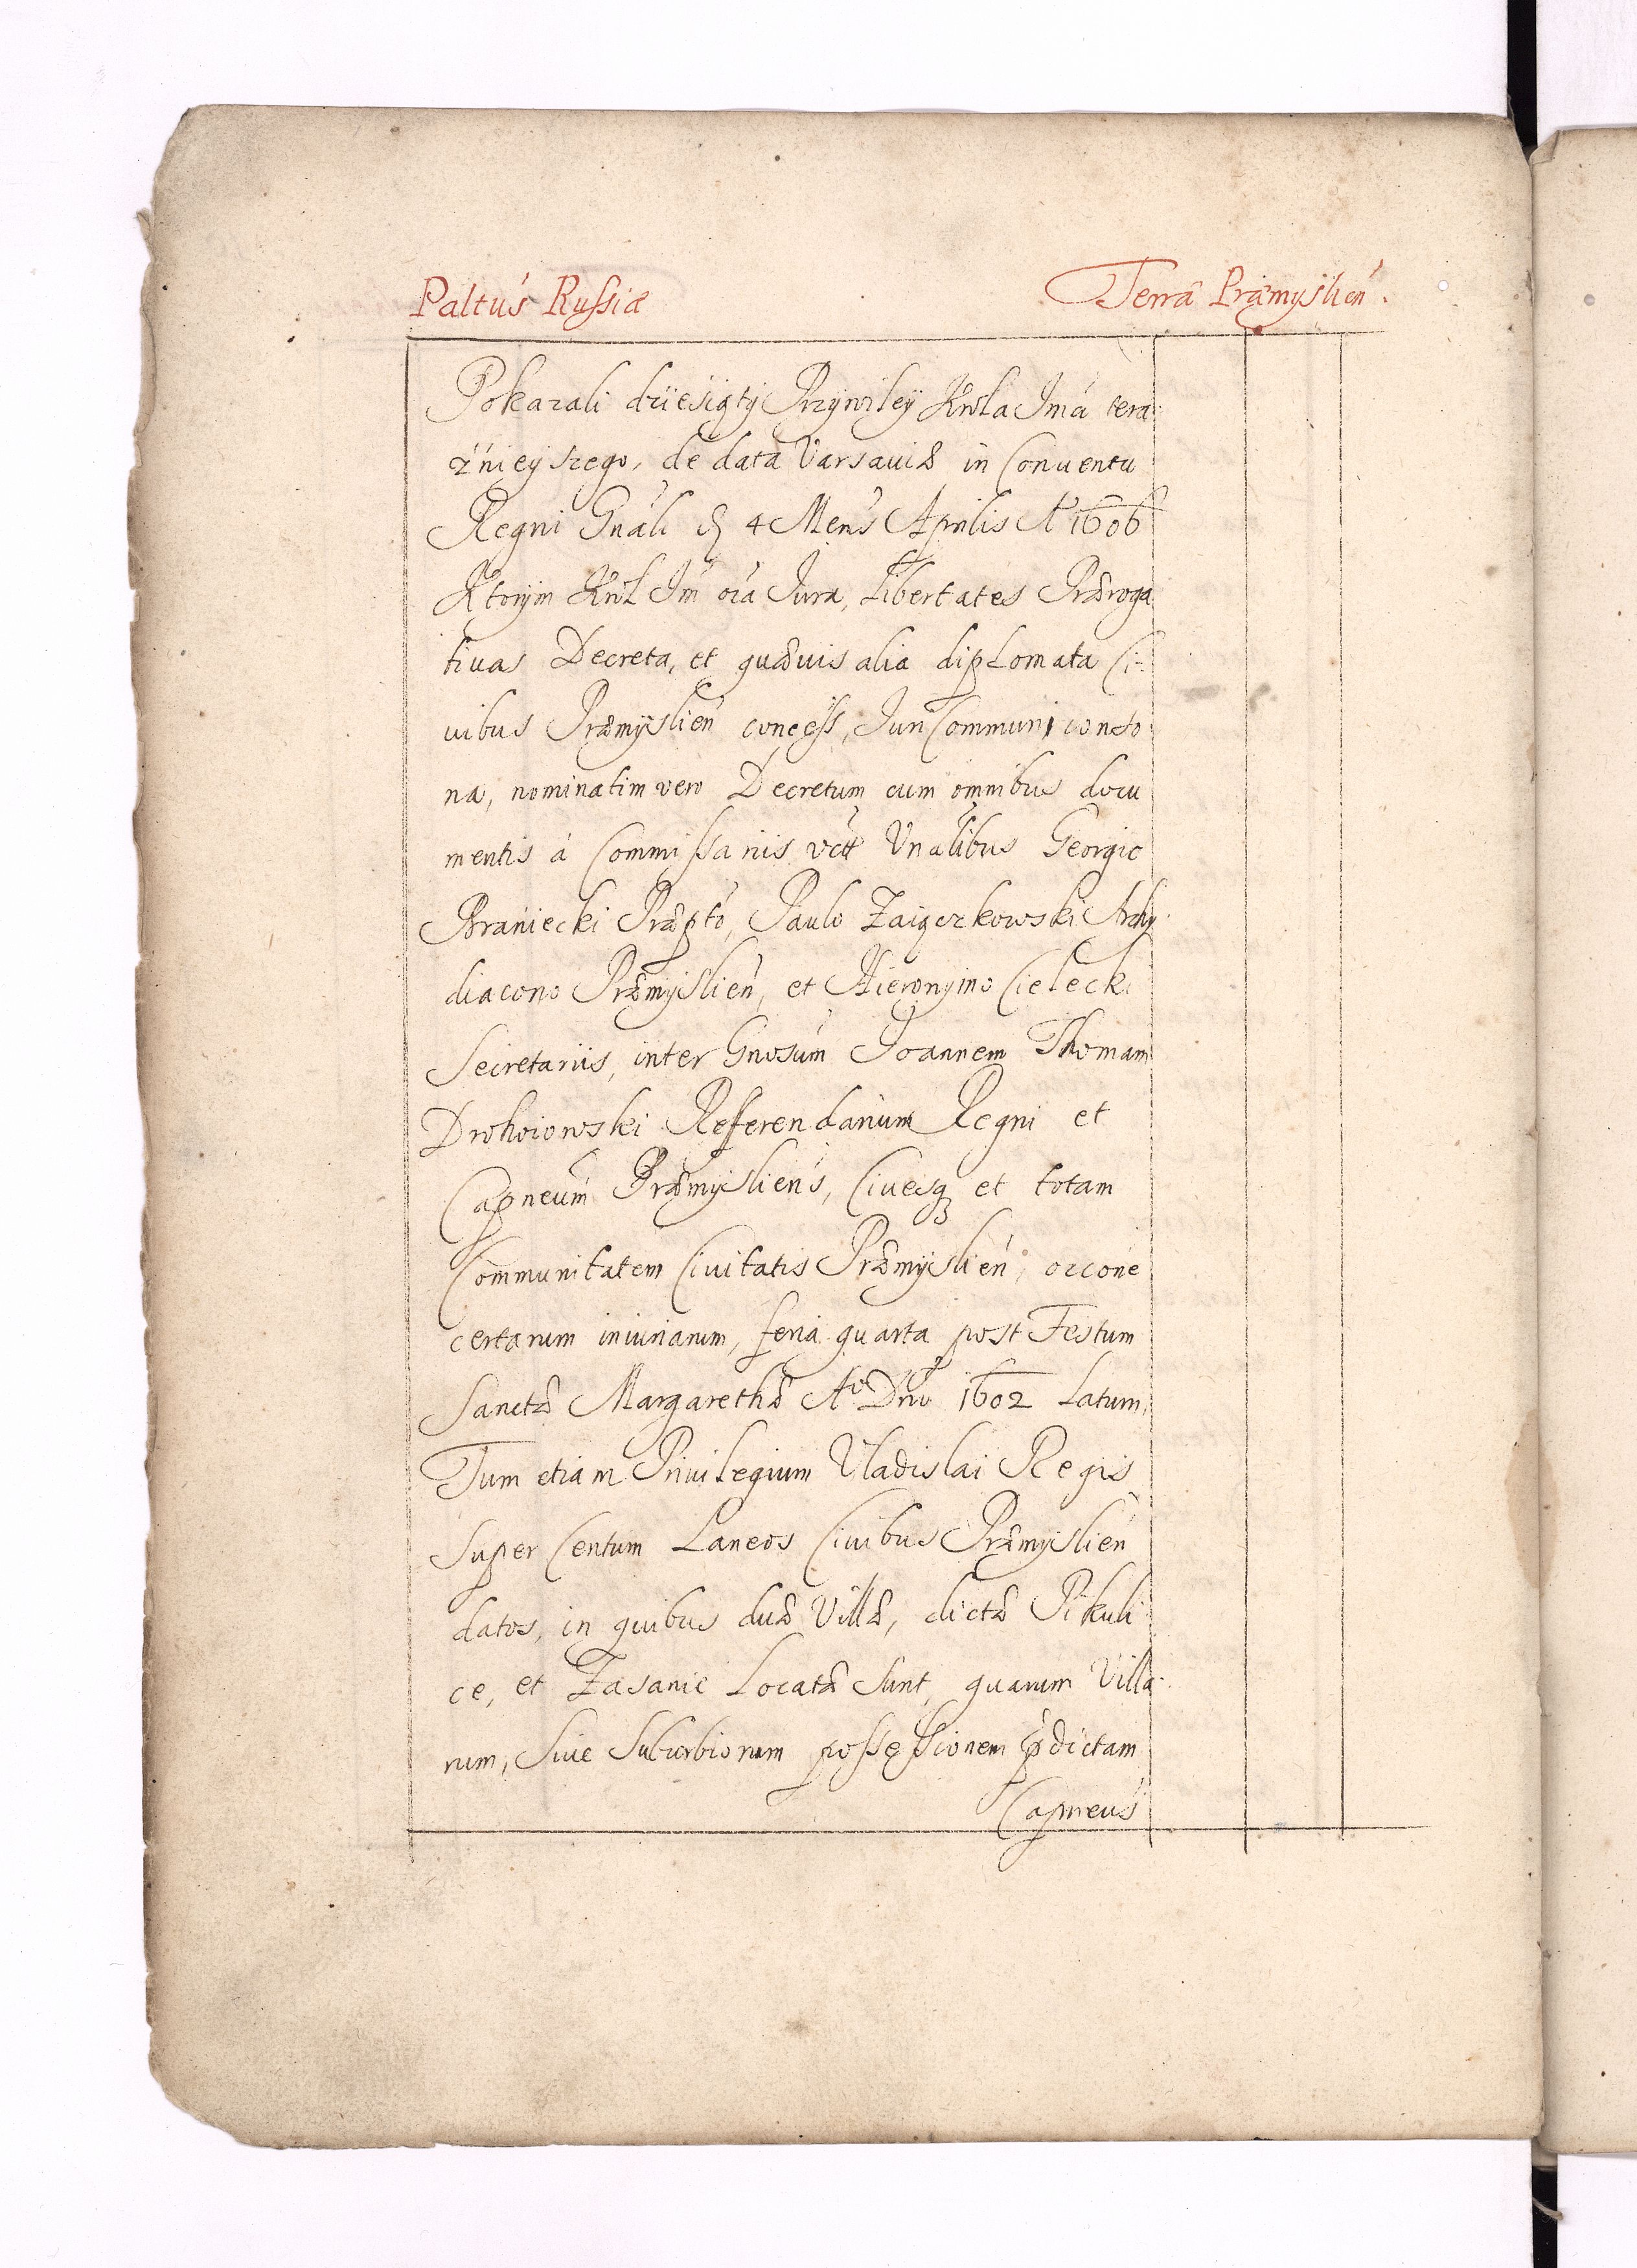 Paltus Russiæ
Terra Præmyslien.
Pokazali dziesiąty Przywiley Krola Jmci tera
znieyszego, de data Varsaviæ in Conventu
Regni Gnali 4 Mens Aprilis Ao 1606
Ktorym Krol Jm oia Iura, Libertates Præroga
tivas Decreta, et quævis alia diplomata Ci-
uibus Præmyslien concess, Iuri Communi
na, nominatim vero Decretum cum omnibus docu
mentis à Commissariis Vnalibus Georgio
Braniecki Præpto, Paulo Zaiączkowski Archy
diacono Præmyslien, et Hieronymo Cielecki
Secretariis, inter Gnosum Joannem Thomam
Drohoiowski Referendarium Regni et
Capneum Præmysliens, Ciuesq et totam
Communitatem Ciuitatis Præmyslien,
certarum iniuriarum, feria quarta post Festum
Sanctæ Margarethæ Ao Dni 1602 Latum,
Tum etiam Priuilegium Vladislai Regis
Super Centum Laneos Ciuibus Præmyslien
datos, in quibus duæ Villæ, dictæ Pikuli
ce, et Zasanie Locatæ Sunt, quarum Villa
rum, Siue Suburbiorum possessionem pdictam
Capneus